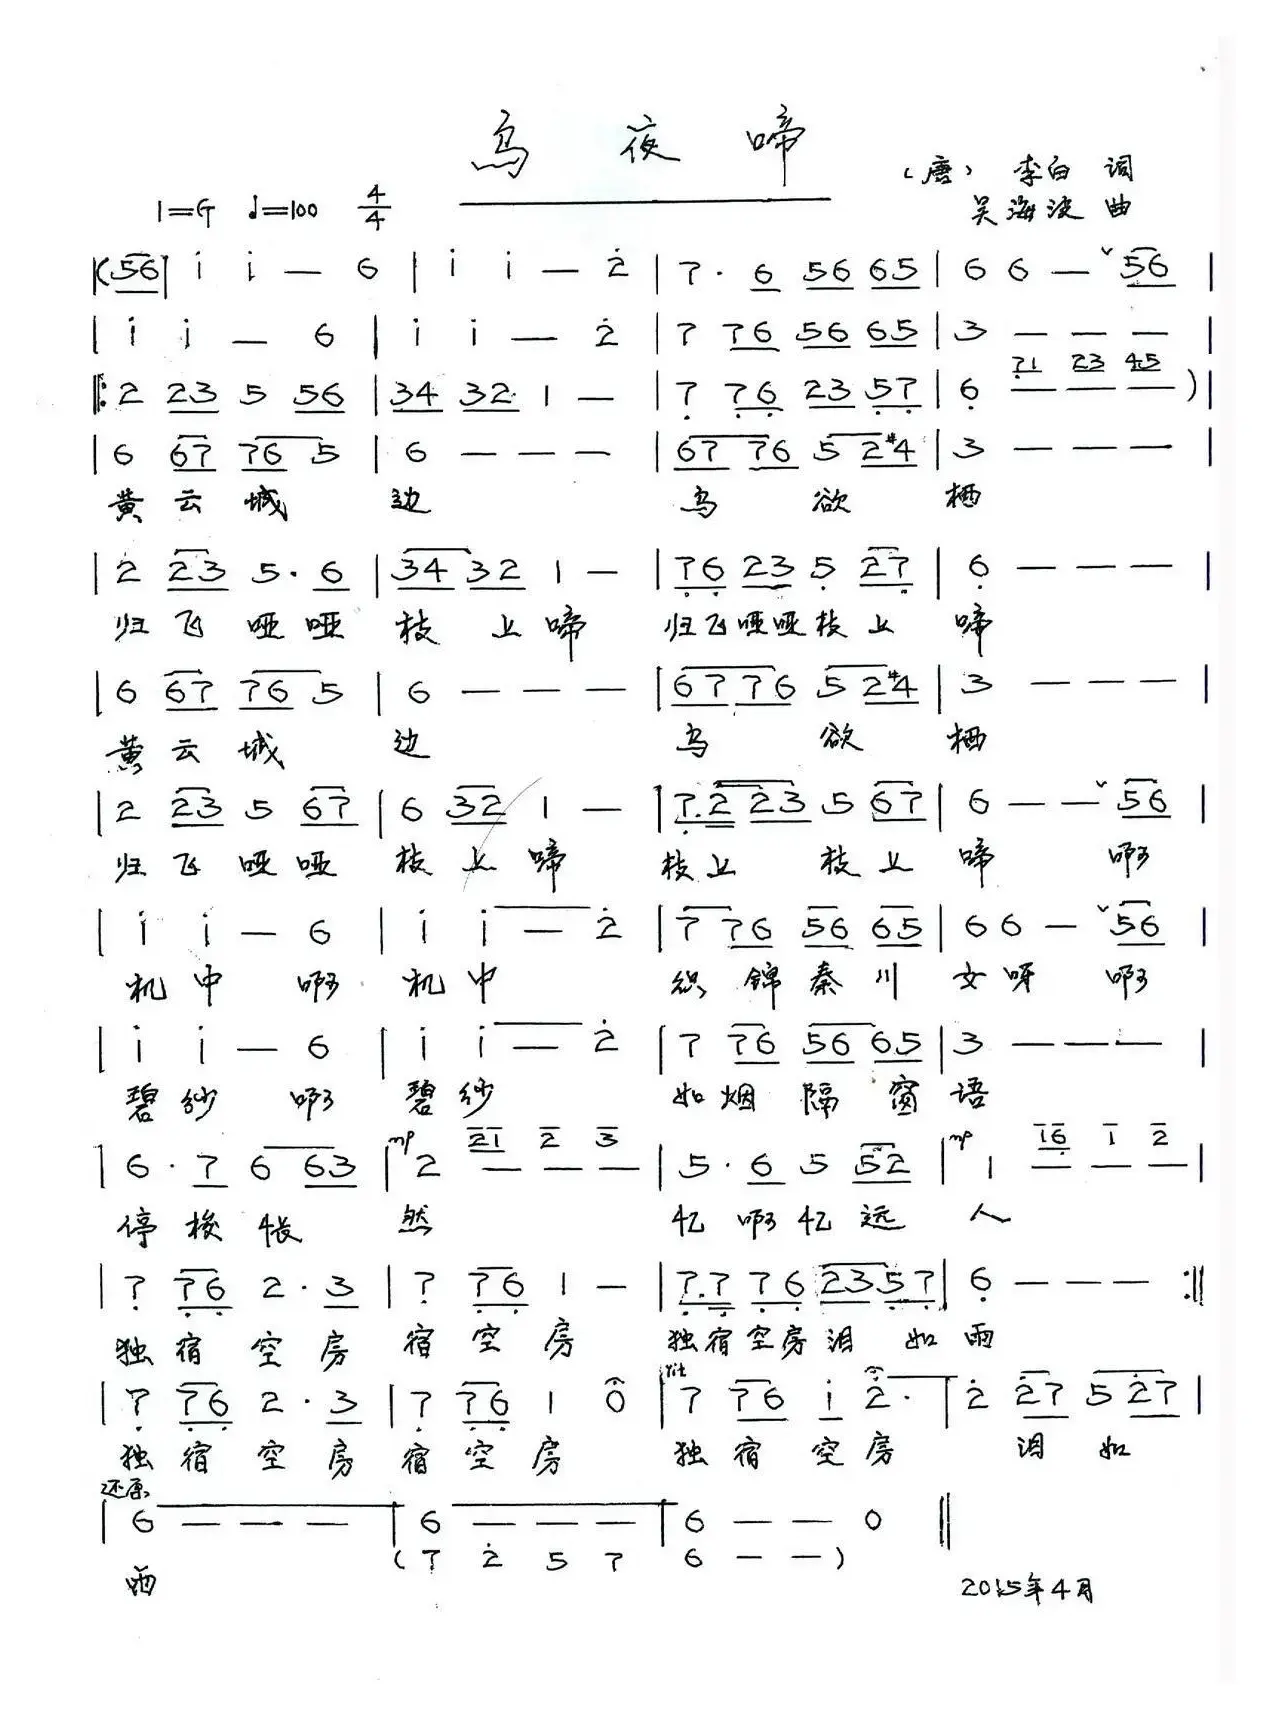 乌夜啼
(唐) 李白 词
1=G ♩=100 4/4
吴海波 曲
|(56| i i — 6 | i i — 2̇ | 7· 6 56 65 | 6 6 — ˅56 |
| i i — 6 | i i — 2̇ | 7 76 56 65 | 3 — — — |
71 23 45
|: 2 23 5 56 | 34 32 1 — | 7 76 23 57 | 6 — — — )|
| 6 67 76 5 | 6 — — — | 67 76 5 2#4 | 3 — — — |
黄云城 边 乌 欲 栖
| 2 23 5· 6 | 34 32 1 — | 76 23 5 27 | 6 — — — |
归飞哑哑 枝上啼 归飞哑哑枝上 啼
| 6 67 76 5 | 6 — — — | 67 76 5 2#4 | 3 — — — |
黄云城 边 乌 欲 栖
| 2 23 5 67 | 6 32 1 — | 7·2 23 5 67 | 6 — — ˅56 |
归飞哑哑 枝上啼 枝上 枝上 啼 啊
| i i — 6 | i i — 2̇ | 7 76 56 65 | 6 6 — ˅56 |
机中 啊 机中 织锦秦川 女呀 啊
| i i — 6 | i i — 2̇ | 7 76 56 65 | 3 — — — |
碧纱 啊 碧纱 如烟隔窗 语
mp 21 2 3 mp 16 1 2
| 6· 7 6 63 | 2 — — — | 5· 6 5 52 | 1 — — — |
停梭怅 然 忆啊忆远 人
| 7 76 2· 3 | 7 76 1 — | 7·7 76 23 57 | 6 — — — :||
独宿空房 宿空房 独宿空房泪 如雨
rit
| 7 76 2· 3 | 7 76 1 0 | 7 76 i 2̇· | 2̇ 2̇7 5 2̇7 |
独宿空房 宿空房 独宿空房 泪 如
还原
| 6 — — — | 6 — — — | 6 — — 0 ||
( 7 2̇ 5 7 6 — — )
雨
2015年4月